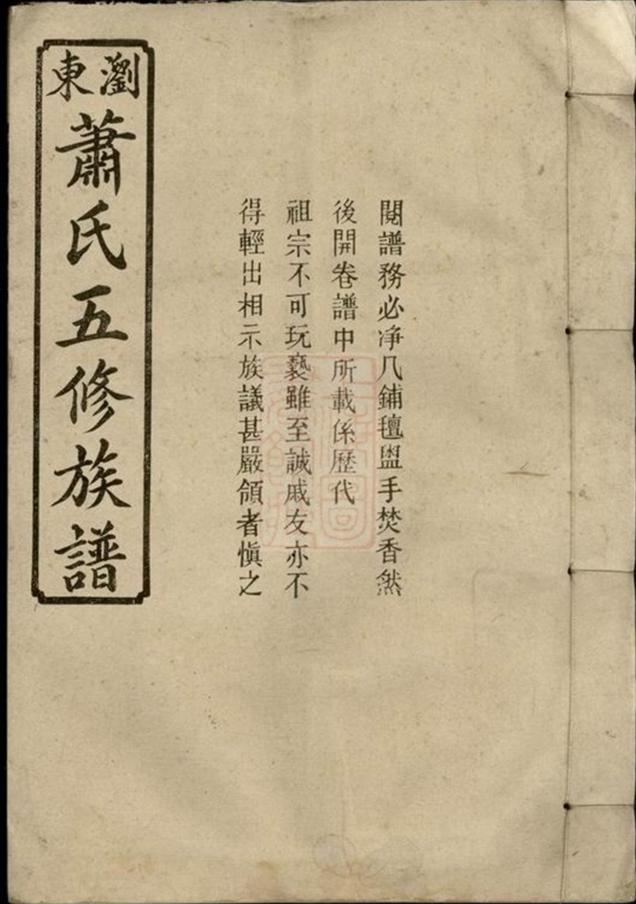 瀏東
蕭氏五修族譜
閱譜務必净几鋪氊盥手焚香然
後開卷譜中所載係歷代
祖宗不可玩褻雖至誠戚友亦不
得輕出相示族議甚嚴領者慎之